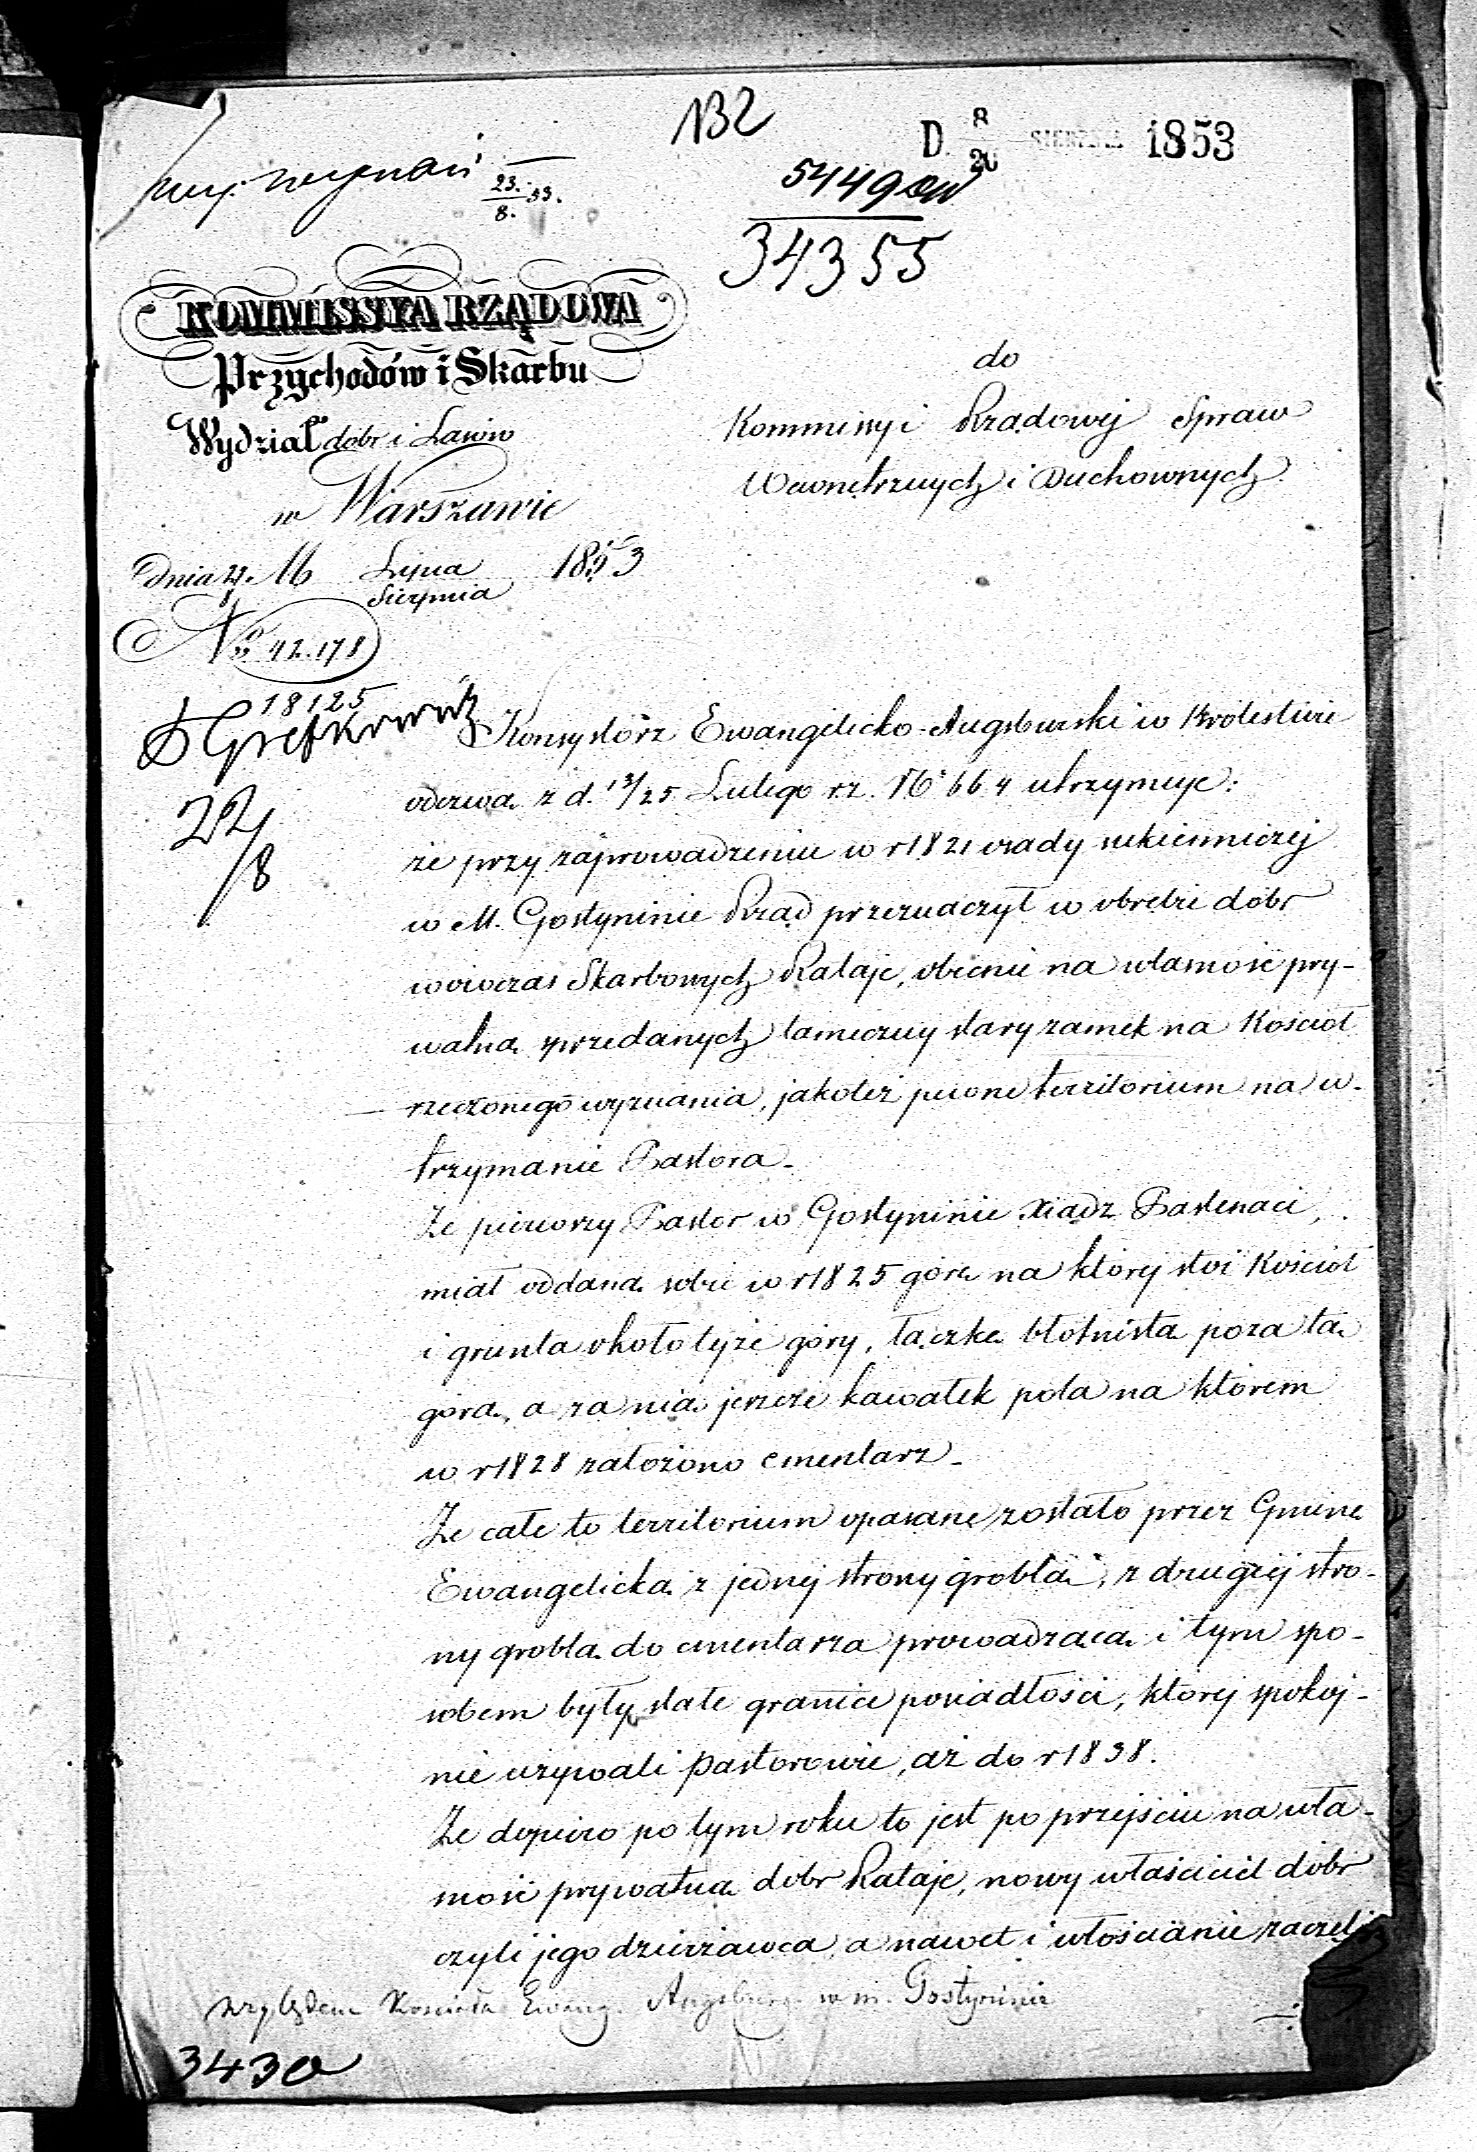 132
D. 8/20 SIERPNIA 1853
23./8. 53.
5449
34355
KOMMISSYA RZĄDOWA
Przychodów i Skarbu
Wydział dóbr i Lasów
w Warszawie
dnia Lipca 1853
Sierpnia
No 42.178
18125
22/8
do
Kommissyi Rządowej Spraw
Wewnetrznych i Duchownych.
Konsystórz Ewangelicko-Augsburski w Królestwie
odezwą z d. 13/25 Lutego r.z. No 664 utrzymuje:
że przy zaprowadzeniu w r 1821 osady sukienniczej
w M. Gostyninie Rząd przeznaczył w obrębie dóbr
wówczas Skarbowych Rataje, obecnie na własność pry-
watną sprzedanych tameczny stary zamek na Kościół
rzeczonego wyznania, jakoteż pewne territorium na u-
trzymanie Pastora.
Że pierwszy Pastor w Gostyninie xiądz Pastenaci,
miał oddaną sobie w r 1825 górę na którey stoi Kościół
i grunta około tyże góry, łączkę błotnistą poza tą
górą, a za nią jeszcze kawałek pola na którem
w r 1828 założono cmentarz.
Że całe to territorium opasane zostało przez Gminę
Ewangelicką z jednej strony groblą, z drugiej stro-
ny groblą do cmentarza prowadzącą i tym spo-
sobem były stałe granice posiadłości, którey spokoj-
nie używali pastorowie, aż do r 1838.
Że dopiero po tym roku to jest po przejściu na wła-
sność prywatną dóbr Rataje, nowy właściciel dóbr
czyli jego dzierżawca, a nawet i włościanie zaczęli
względem Kościoła Ewang. Augsburg. w m. Gostyninie
3430